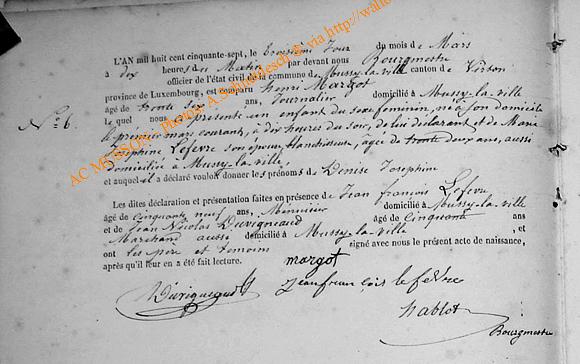 L'AN mil huit cent cinquante-sept, le troisième jour du mois de Mars
à dix heures du Matin par devant nous Bourgmestre
officier de l'état civil de la commune de Mussy-la-ville canton de Virton
province de Luxembourg, est comparu henri Margot
âgé de trente six ans, Journalier domicilié à Mussy-la-ville
lequel nous a présenté un enfant du sexe féminin, né à son domicile
No 6.
le prémier mars courant, à dix heures du soir, de lui déclarant et de Marie
Josephine Lefevre son épouse, blanchisseuse, agée de trente deux ans, aussi
domiciliée à Mussy-la-ville,
et auquel il a déclaré vouloir donner les prénoms de Denise Josephine
Les dites déclaration et présentation faites en présence de Jean françois Lefevre
âgé de cinquante neuf ans, Ménuisier domicilié à Mussy-la-ville
et de Jean Nicolas Duvigneaud âgé de Cinquante ans
Marchand aussi domicilié à Mussy-la-ville , et
ont les père et témoins signé avec nous le présent acte de naissance,
après qu'il leur en a été fait lecture.
margot
Duvigneaud Jean françois lefevre
hablot
Bourgmestre
AC MUSSON - Photos A. via http://